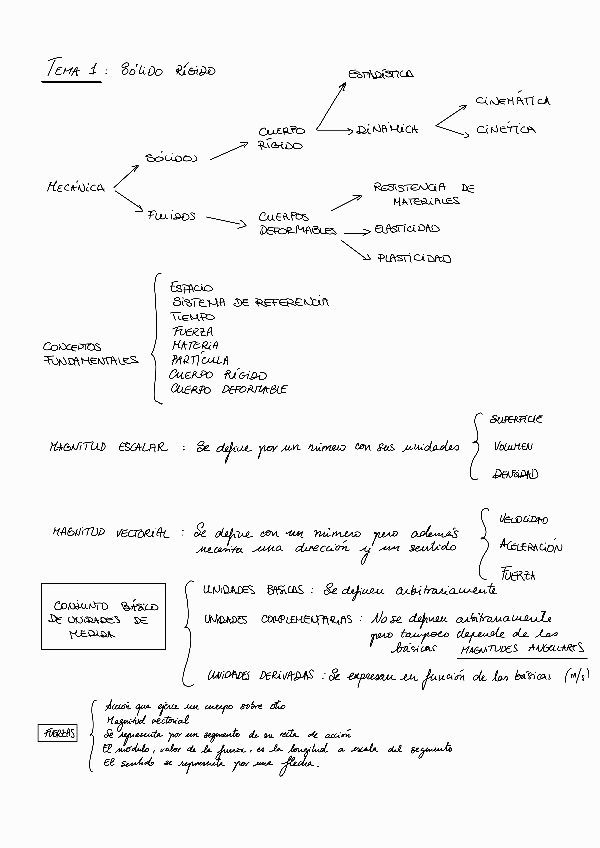 TEMA 1: SÓLIDO RÍGIDO
ESTADÍSTICA
CINEMÁTICA
CUERPO
RÍGIDO
DINÁMICA
CINÉTICA
SÓLIDOS
MECÁNICA
RESISTENCIA DE
MATERIALES
FLUIDOS
CUERPOS
DEFORMABLES
ELASTICIDAD
PLASTICIDAD
CONCEPTOS
FUNDAMENTALES
ESPACIO
SISTEMA DE REFERENCIA
TIEMPO
FUERZA
MATERIA
PARTÍCULA
CUERPO RÍGIDO
CUERPO DEFORMABLE
MAGNITUD ESCALAR : Se define por un número con sus unidades
SUPERFICIE
VOLUMEN
DENSIDAD
MAGNITUD VECTORIAL : Se define con un número pero además
necesita una dirección y un sentido
VELOCIDAD
ACELERACIÓN
FUERZA
CONJUNTO BÁSICO
DE UNIDADES DE
MEDIDA
UNIDADES BÁSICAS : Se definen arbitrariamente
UNIDADES COMPLEMENTARIAS : No se definen arbitrariamente
pero tampoco depende de las
básicas MAGNITUDES ANGULARES
UNIDADES DERIVADAS : Se expresan en función de las básicas (m/s)
FUERZAS
Acción que ejerce un cuerpo sobre otro
Magnitud vectorial
Se representa por un segmento de su recta de acción
El módulo, valor de la fuerza, es la longitud a escala del segmento
El sentido se representa por una flecha.